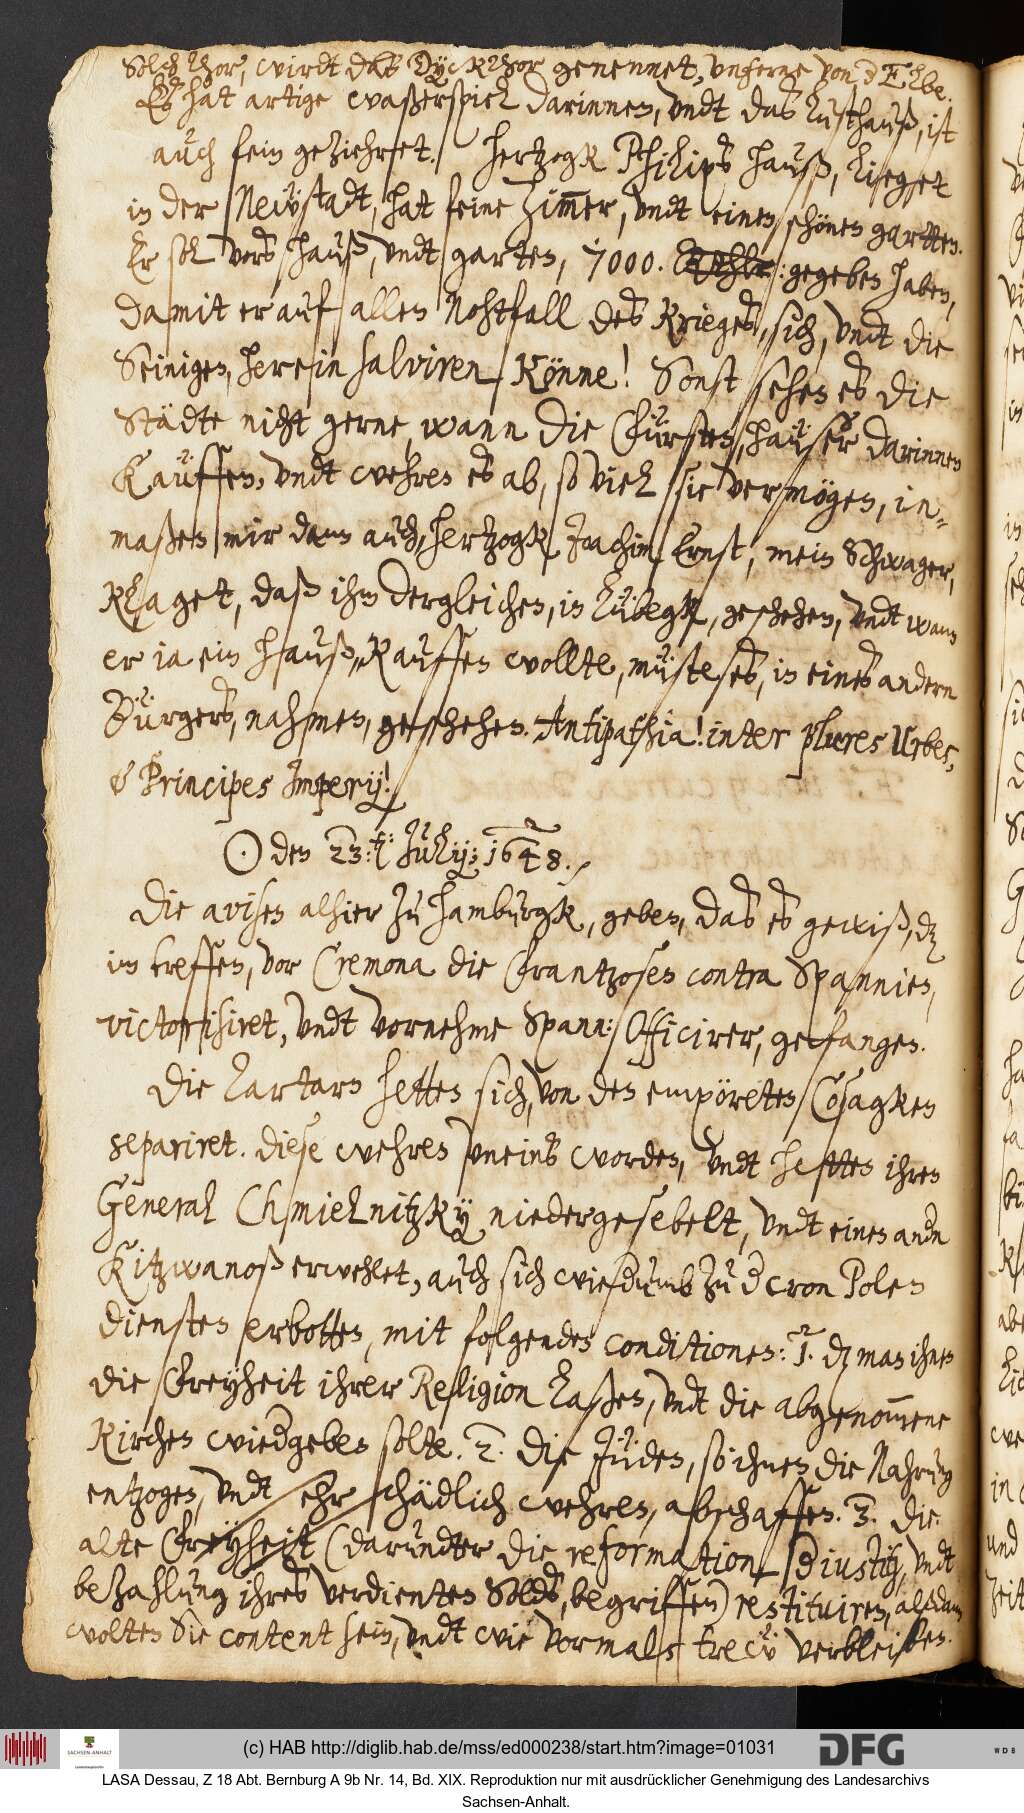 Solch Thor, wirdt daß Dyckthor genennet, unferne von d' Elbe.
Es hat artige waßerspiel darinnen, undt das Lusthauß, ist
auch fein geziehret. Hertzogk Philips hauß, lieget
in der Neustadt, hat feine Zim̅er, undt einen schönen garten.
Er sol vors hauß, undt garten, 7000. gegeben haben,
damit er auf allen Nohtfall des Krieges, sich, undt die
Seinigen, herein salviren Könne! Sonst sehen es die
Städte nicht gerne, wann die Fürsten, häuser darinnen
Kauffen, undt wehren es ab, so viel sie vermögen, in-
maßen mir dann auch, Hertzogk Joachim Ernst, mein Schwager,
Klaget, daß ihm dergleichen, in Lübegk, geschehen, undt wann
er ia ein hauß, Kauffen wollte, müste es, in eines andern
Bürgers, nahmen, geschehen. Antipathia! inter plures Urbes,
& Principes Imperij!
☉ den 23: t: Julij; 1648.
Die avisen alhier zu hamburgk, geben, das es gewiß, dz
im treffen, vor Cremona die Frantzosen contra Spannien,
victorisiret, undt vornehme Spann: Officirer, gefangen.
Die Tartarn hetten sich, von den empöreten Cosagken
separiret. diese wehren uneins worden, undt hetten ihren
General Chmielnitzky niedergesebelt, undt einen andn
Kitzwanoß erwehlet, auch sich wied'umb zu d' cron Polen
diensten erbotten, mit folgenden conditionen: 1. dz man ihnen
die Freyheit ihrer Religion laßen, undt die abgenom̅ene
Kirchen wied'geben solte. 2. Die Juden, so ihnen die Nahrung
entzogen, undt sehr schädlich wehren, abschaffen. 3. Die
alte Freyheit (darundter die reformation d' iustitz, undt
bezahlung ihres verdienten Solds, begriffen) restituiren, alsdann
wolten Sie content sein, undt wie vormals treu verbleiben.
(c) HAB http://diglib.hab.de/mss/ed000238/start.htm?image=01031
SACHSEN-ANHALT
DFG
WDB
LASA Dessau, Z 18 Abt. Bernburg A 9b Nr. 14, Bd. XIX. Reproduktion nur mit ausdrücklicher Genehmigung des Landesarchivs
Sachsen-Anhalt.